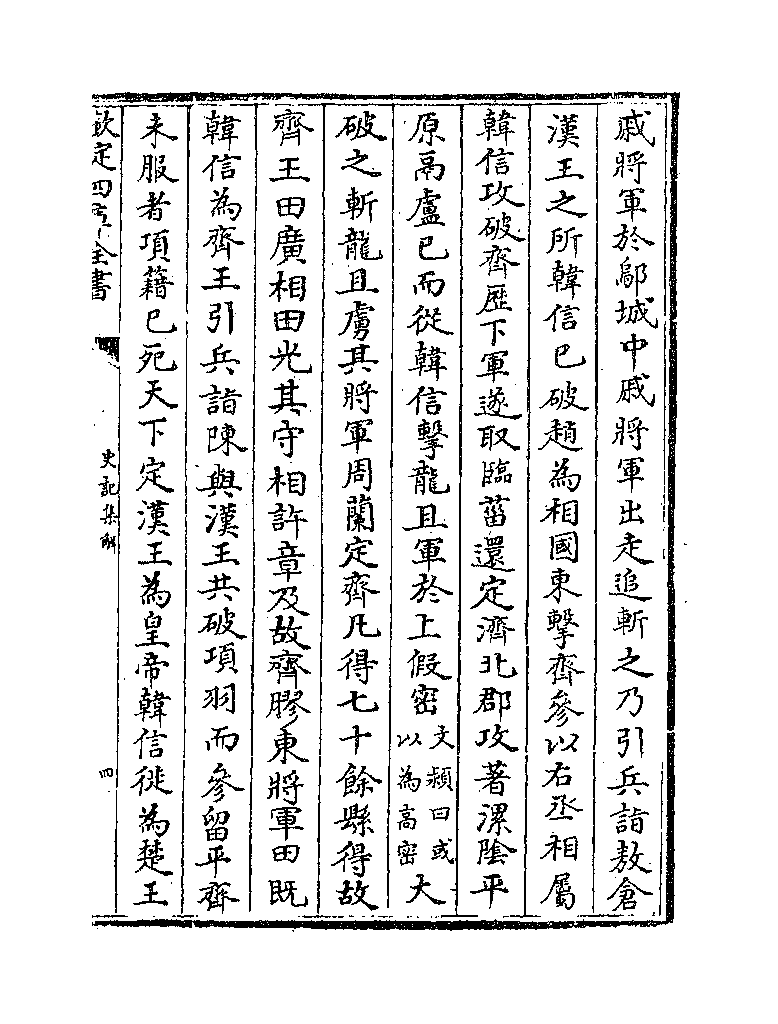 戚將軍於鄔城中戚將軍出走追斬之乃引兵詣敖倉
漢王之所韓信已破趙為相國東擊齊參以右丞相屬
韓信攻破齊歷下軍遂取臨菑還定濟北郡攻著漯隂平
原鬲盧已而從韓信擊龍且軍於上假密文頴曰或以為高密大
破之斬龍且虜其將軍周蘭定齊凡得七十餘縣得故
齊王田廣相田光其守相許章及故齊膠東將軍田既
韓信為齊王引兵詣陳與漢王共破項羽而參留平齊
未服者項籍已死天下定漢王為皇帝韓信徙為楚王
欽定四庫全書
史記集解
四